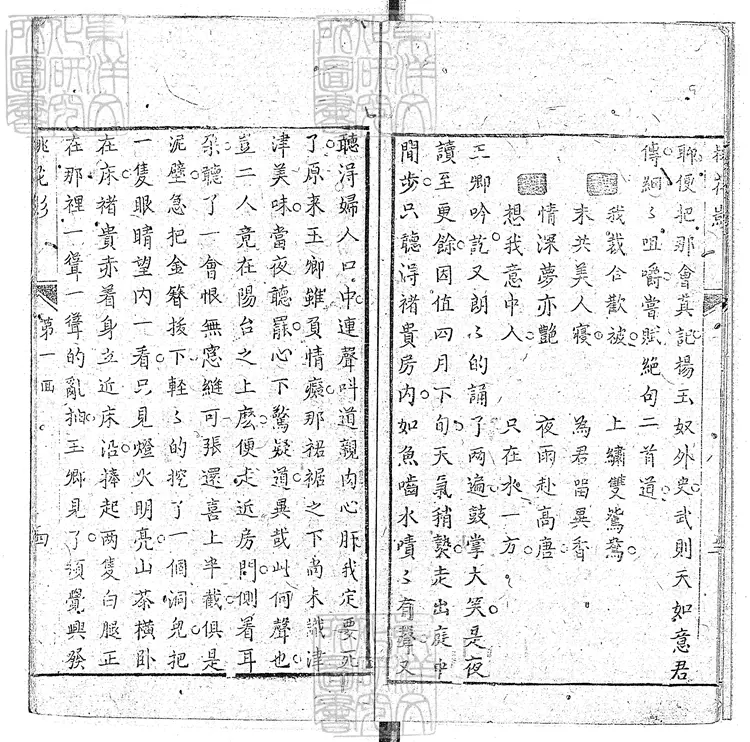 桃花影
聊便把那會真記楊玉奴外史武則天如意君
傳細〻咀嚼嘗賦絕句二首道
我裁合歡被 上繡雙鴛鴦
來共美人寢 為君留異香
情深夢亦艷 夜雨赴高唐
想我意中人 只在水一方
玉卿吟訖又朗〻的誦了两遍鼓掌大笑是夜
讀至更餘因值四月下旬天氣稍𤍠走出庭中
閒步只聽淂褚貴房内如魚嚙水嘖〻有聲又
聽淂婦人口中連聲呌道親肉心肝我定要死
了原来玉卿雖負情癡那裙裾之下尚未識津
津美味當夜聽罷心下驚疑道異哉此何聲也
豈二人竟在陽台之上麽便走近房門側着耳
朶聽了一會恨無窓縫可張還喜上半截俱是
泥壁急把金簪拔下輕〻的挖了一個洞兒把
一隻眼睛望内一看只見燈火明亮山茶橫卧
在床褚貴赤着身立近床沿捧起兩隻白腿正
在那裡一聳一聳的亂抽玉卿見了頓覺興發
桃花影
第一囬
四